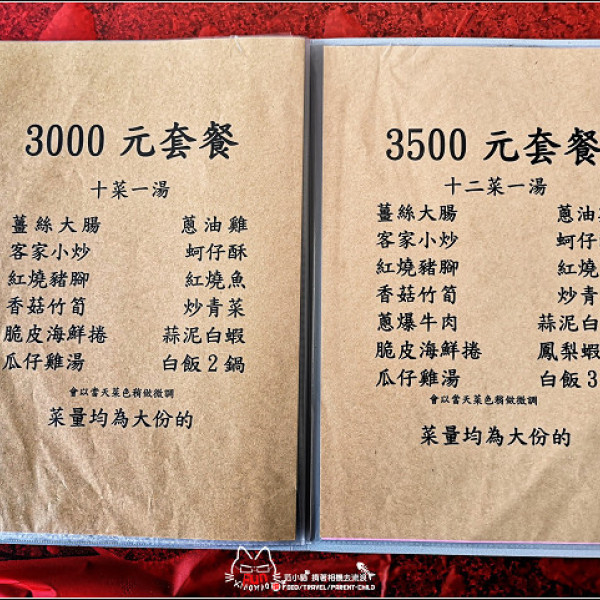 3000 元套餐
十菜一湯
薑絲大腸 蔥油雞
客家小炒 蚵仔酥
紅燒豬腳 紅燒魚
香菇竹筍 炒青菜
脆皮海鮮捲 蒜泥白蝦
瓜仔雞湯 白飯2鍋
會以當天菜色稍做微調
菜量均為大份的
3500 元套餐
十二菜一湯
薑絲大腸 蔥油
客家小炒 蚵仔
紅燒豬腳 紅燒
香菇竹筍 炒青
蔥爆牛肉 蒜泥白
脆皮海鮮捲 鳳梨蝦
瓜仔雞湯 白飯3
會以當天菜色稍做微調
菜量均為大份的
FOOD/TRAVEL/PARENT-CHILD